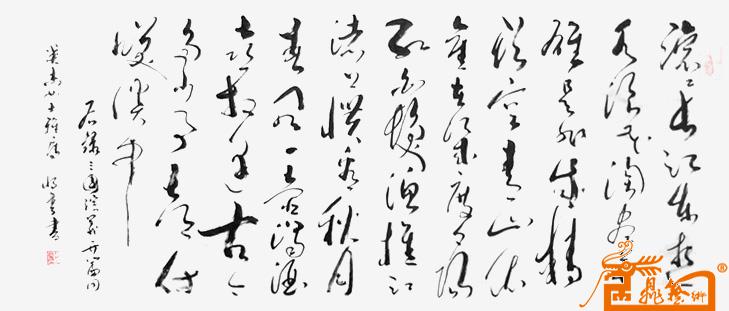 滚滚长江东逝
水浪花淘尽英
雄是非成败转
头空青山依
旧在几度夕阳
红白发渔樵江
渚上惯看秋月
春风一壶浊酒
喜相逢古今
多少事都付
笑谈中
右录三国演义开篇词
书